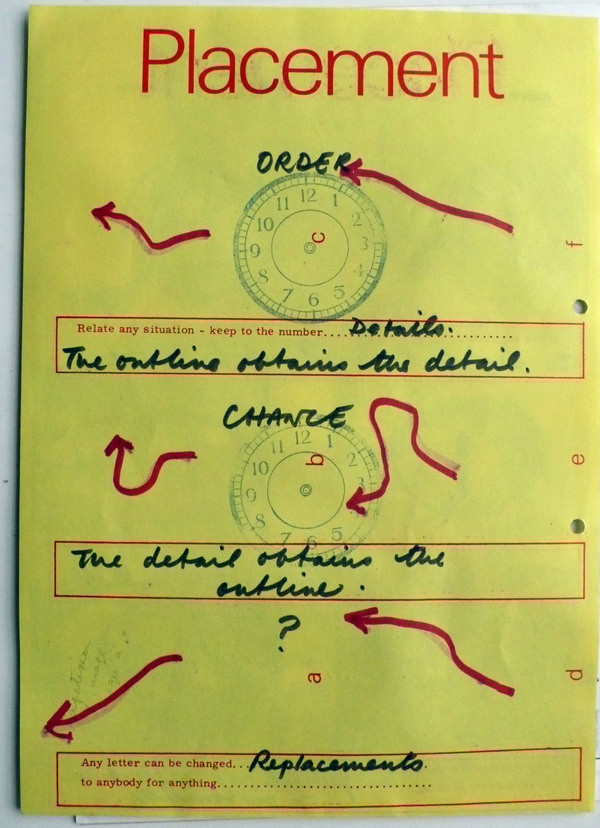 Placement
ORDER
11 12 1
10 2
9 c 3 f
8 4
7 6 5
Relate any situation - keep to the number.... Details.
The outline obtains the detail.
CHANCE
11 12 1
10 b 2 e
9 3
8
7 6 5
The detail obtains the
outline.
?
a d
Any letter can be changed... Replacements
to anybody for anything